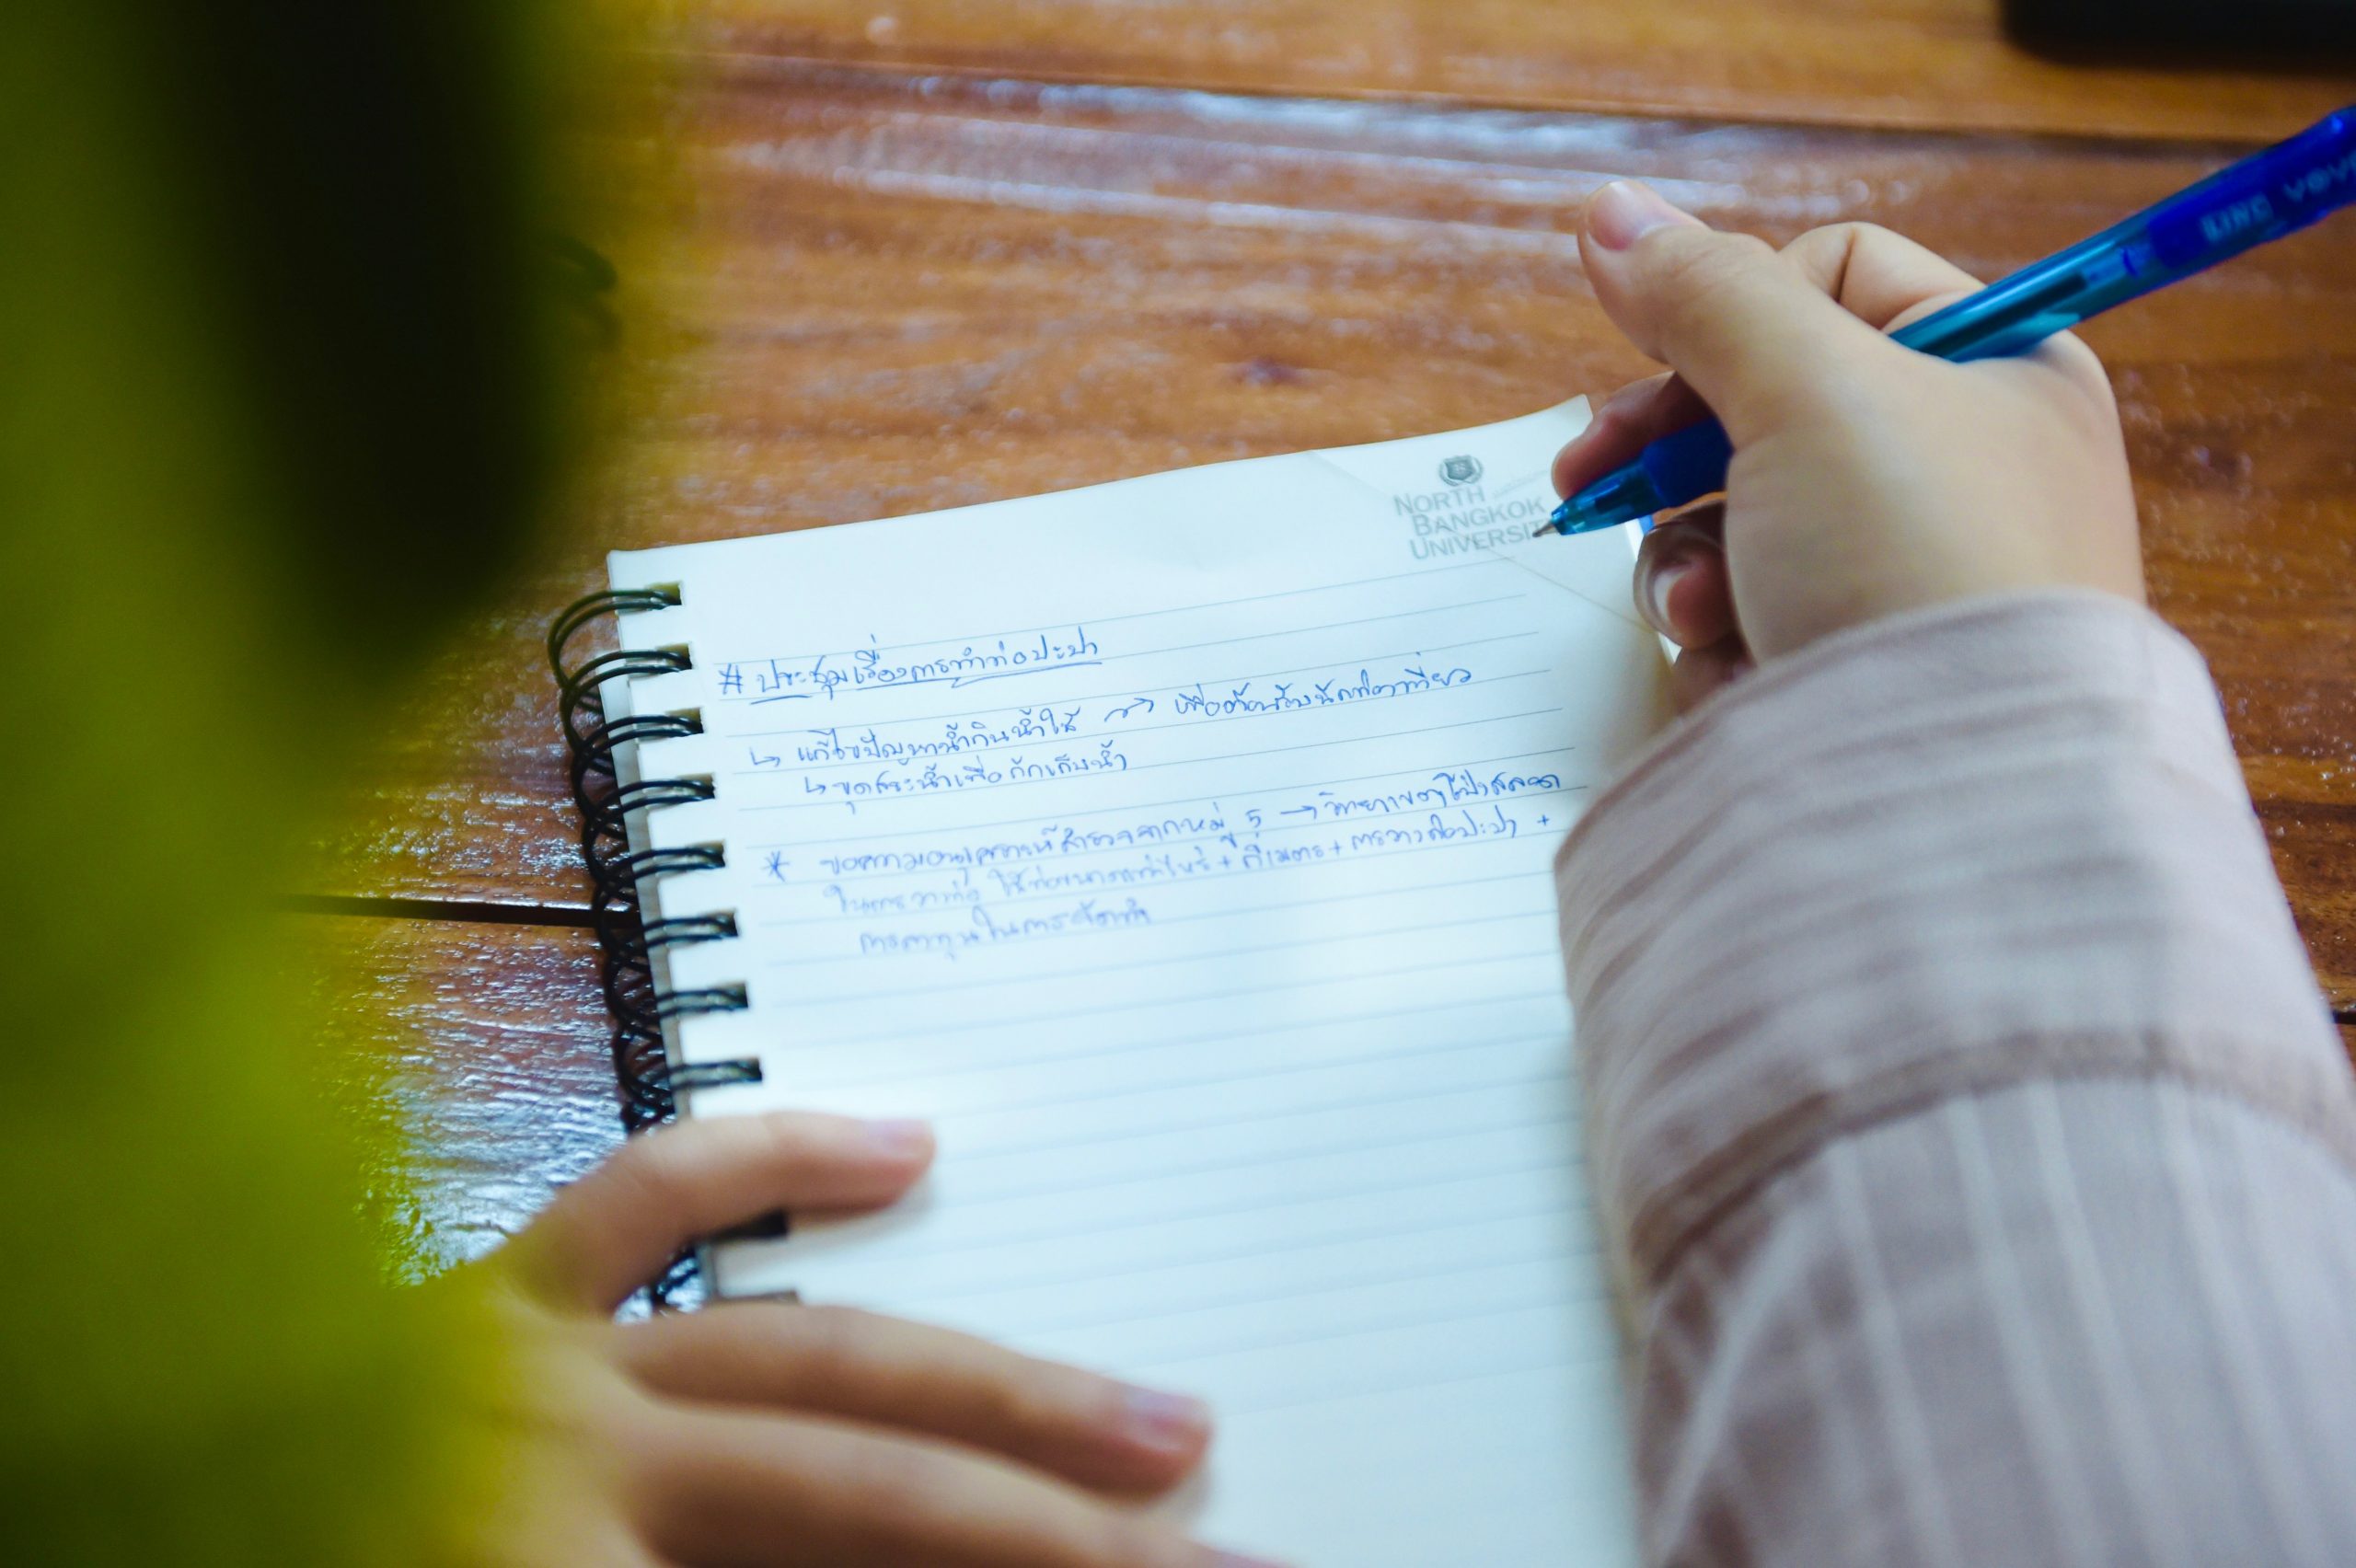 NORTH
BANGKOK
UNIVERSIT
# ประชุมเรื่องการทำท่อปะปา
↳ แก้ไขปัญหาน้ำกินน้ำใช้ → เพื่อต้อนรับนักท่องเที่ยว
↳ ขุดสระน้ำเพื่อกักเก็บน้ำ
* ขอความอนุเคราะห์สำรวจจากหมู่ 5 →
ในการวางท่อ ใช้ท่อขนาดเท่าไหร่ + กี่เมตร + การวางท่อปะปา +
การลงทุนในการจัดทำ